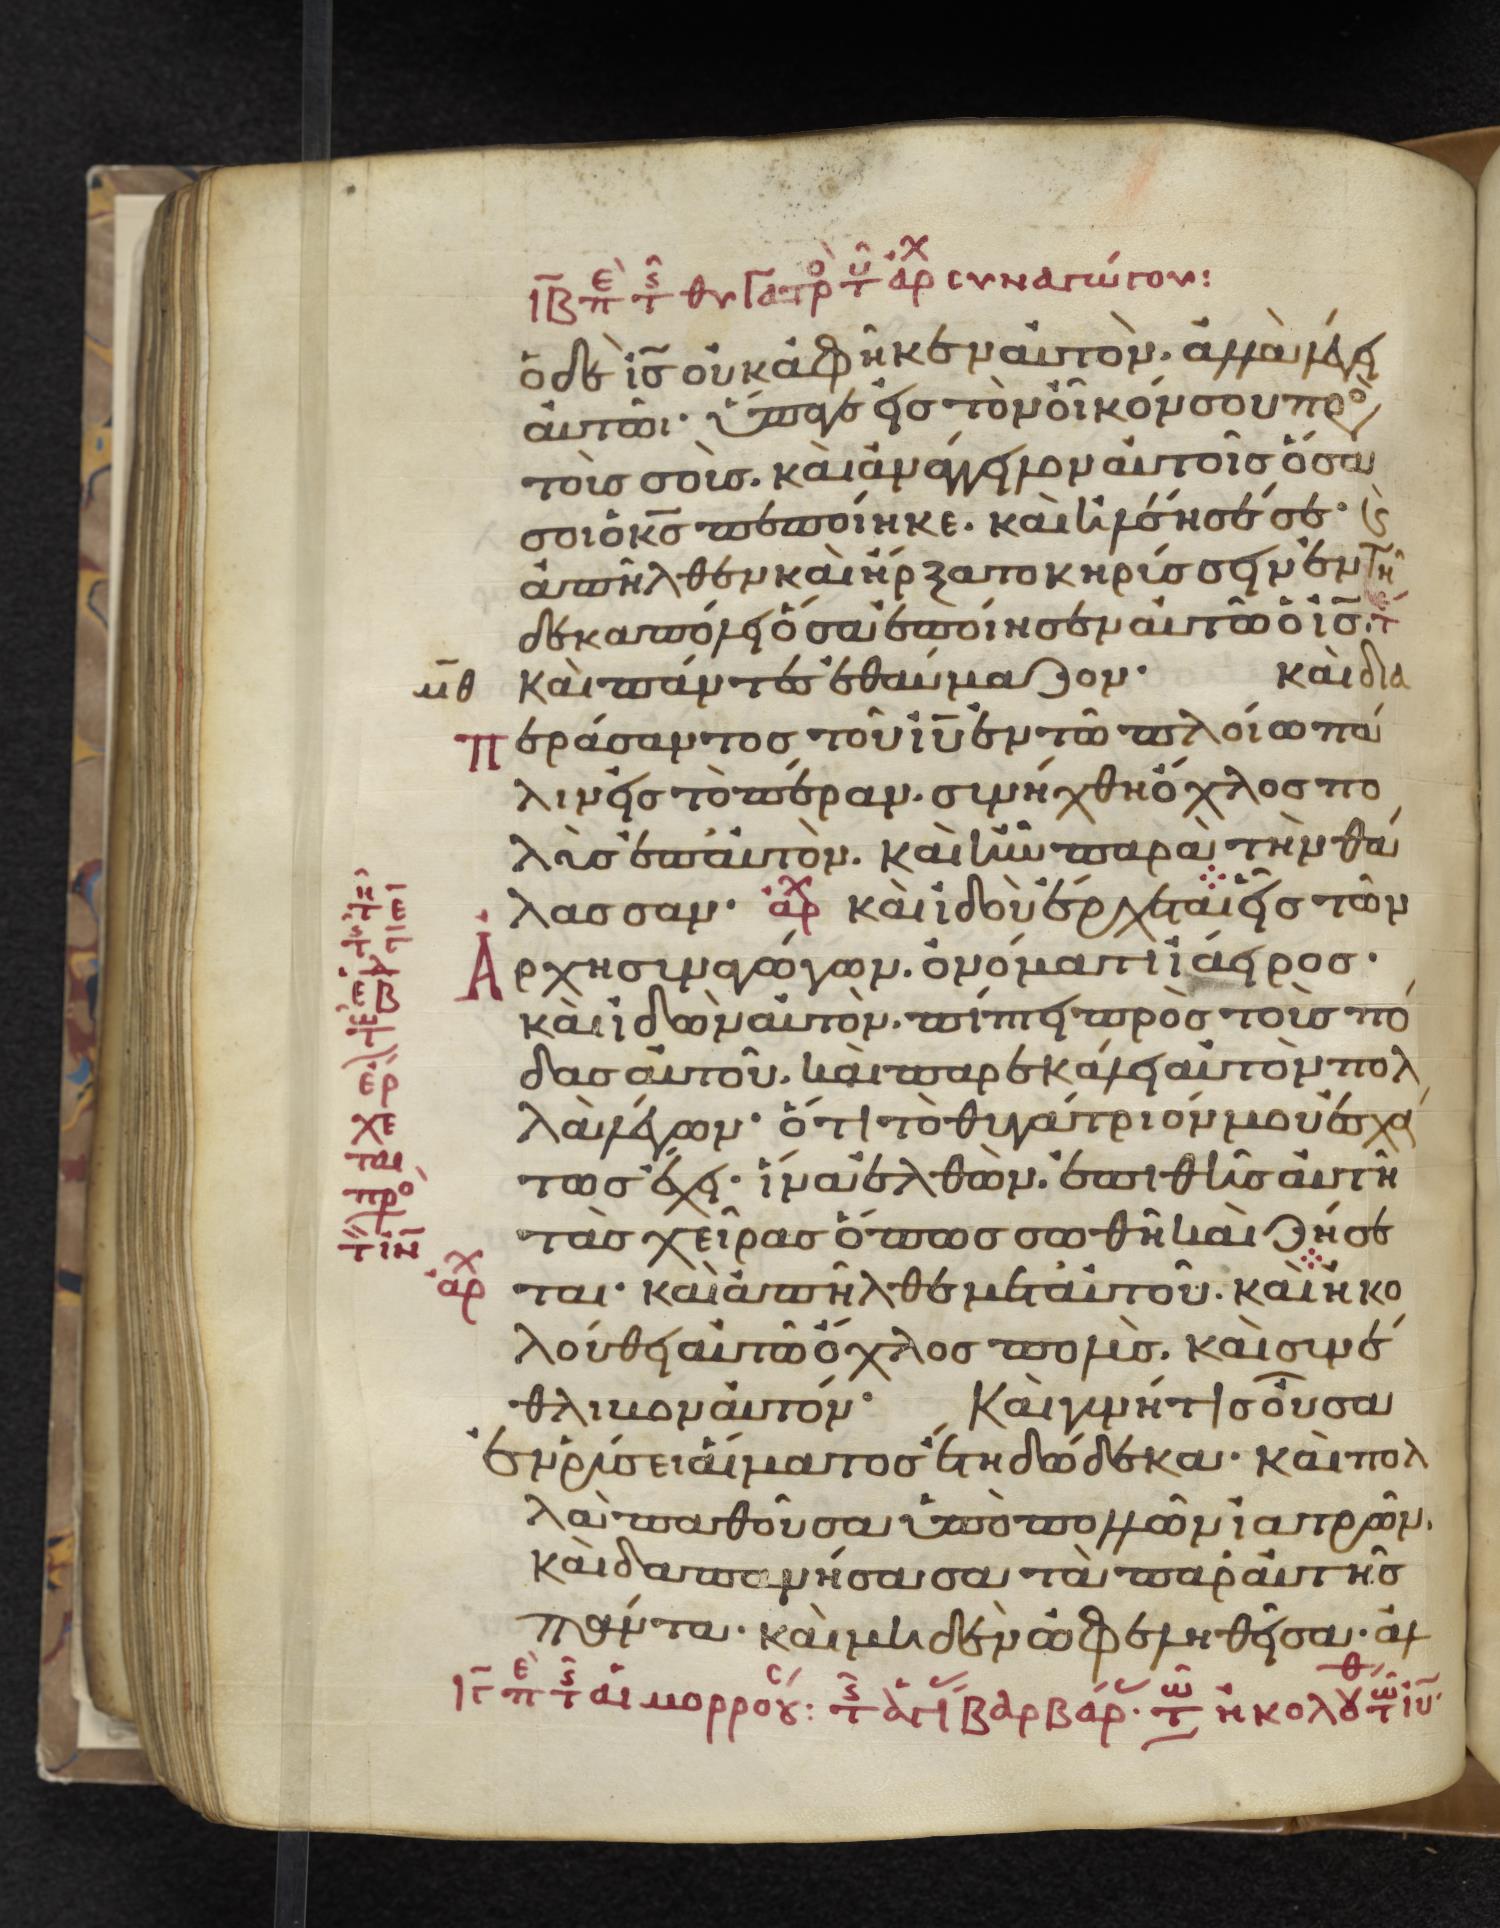 ΙΒ πε τς θυγατρο του αρχ συναγώγου:
ὁ δὲ ις οὐκ ἀφῆκεν αὐτὸν. ἀλλὰ λέγει
αὐτῶι· ὕπαγε εἰς τὸν οἶκόν σου προ
τοὺς σοὺς. καὶ ἀνάγγειλον αὐτοῖς ὅσα
σοι ὁ κς πεποίηκε. καὶ ἠλέησέ σε· ϗ
ἀπῆλθεν καὶ ἤρξατο κηρύσσειν ἐν τῆ
δεκαπόλει ὅσα ἐποίησεν αὐτῶ ὁ ις.
μθ καὶ πάντες ἐθαύμαζον· καὶ δια
περάσαντος τοῦ ιυ ἐν τῶ πλοίω πά
λιν εἰς τὸ πέραν. συνήχθη ὄχλος πο
λὺς ἐπ' αὐτὸν. καὶ ἦν παρὰ τὴν θά
λασσαν· αρχ καὶ ἰδοὺ ἔρχεται εἷς τῶν
Αρχησυναγώγων. ὀνόματι ϊάειρος·
καὶ ἰδὼν αὐτὸν. πίπτει πρὸς τοὺς πό
δας αὐτοῦ. καὶ παρεκάλει αὐτὸν πολ
λὰ λέγων· ὅτι τὸ θυγάτριόν μου ἐσχά
τως ἔχει· ἵνα ἐλθὼν. ἐπιθῆς αὐτῆ
τὰς χεῖρας ὅπως σωθῆ καὶ ζήσε
ται· καὶ ἀπῆλθε μετ' αὐτοῦ. καὶ ἠκο
αρχ
λούθει αὐτῶ ὄχλος πολὺς. καὶ συνέ
θλιβον αὐτόν· Καὶ γυνή τις οὖσα
ἐν ῥύσει αἵματος ἔτη δώδεκα· καὶ πολ
λὰ παθοῦσα ὑπὸ πολλῶν ἰατρῶν.
καὶ δαπανήσασα τὰ παρ' αὐτῆς
πάντα· καὶ μηδὲν ὠφεληθεῖσα· ἀλ
ΙΓ πε τς αἱμορρού: τς ἁγι βαρβάρ· τω ἠκολούθ τω ιυ
ἔρ
χε
ται
προ